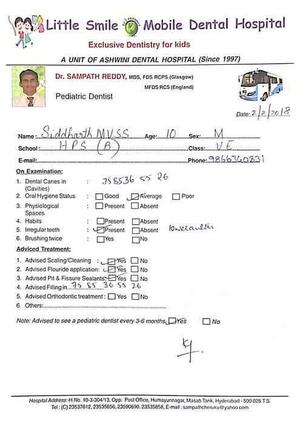 Little Smile Mobile Dental Hospital
Exclusive Dentistry for kids
A UNIT OF ASHWINI DENTAL HOSPITAL (Since 1997)
Dr. SAMPATH REDDY, MDS, FDS RCPS (Glasgow)
MFDS RCS (England)
Pediatric Dentist
Date: 2/2/2018
Name: Siddharth MVSS Age: 10 Sex: M
School: HPS (B) Class: VE
E-mail: Phone: 9866340231
On Examination:
1. Dental Caries in (Cavities) 75 85 36 55 26
2. Oral Hygiene Status Good Average Poor
3. Physiological Spaces Present Absent
4. Habits Present Absent
5. Irregular teeth Present Absent
6. Brushing twice Yes No
Adviced Treatment:
1. Advised Scaling/Cleaning Yes No
2. Advised Flouride application Yes No
3. Advised Pit & Fissure Sealants Yes No
4. Advised Filling in 75 85 36 55 26
5. Advised Orthodontic treatment: Yes No
6. Others:
Note: Advised to see a pediatric dentist every 3-6 months Yes No
Hospital Address: H.No. 10-3-304/13, Opp. Post Office, Humayunnagar, Masab Tank, Hyderabad - 500 028.T.S.
Tel : (C) 23537612, 23535656, 23590690, 23535858, E-mail : sampathchinnku@yahoo.com